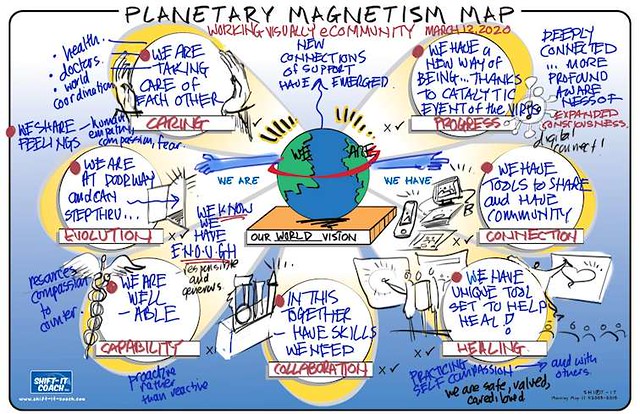 PLANETARY MAGNETISM MAP
WORKING VISUALLY eCOMMUNITY MARCH 12, 2020
• health.
• doctors.
• world
coordination
• WE ARE
TAKING
CARE OF
EACH OTHER
CARING
NEW
CONNECTIONS
OF SUPPORT
HAVE EMERGED.
• WE HAVE A
NEW WAY OF
BEING... THANKS
TO CATALYTIC
EVENT OF the VIRUS
PROGRESS
DEEPLY
CONNECTED
... MORE
PROFOUND
AWARE
NESS OF
EXPANDED
CONSCIOUSNESS.
digital
connect!
• WE SHARE
FEELINGS
— human
empathy,
compassion, fear.
• WE ARE
AT DOORWAY
and CAN
STEP THRU...
EVOLUTION
WE ARE
WE ARE
WE HAVE
OUR WORLD VISION
WE KNOW
WE
HAVE
ENOUGH
responsible
and
generous.
• WE HAVE
TOOLS to SHARE
and HAVE
COMMUNITY
CONNECTION
resources
compassion
to
counter.
• WE ARE
WELL
— ABLE
CAPABILITY
proactive
rather
than reactive
• IN THIS
TOGETHER
— HAVE SKILLS
WE NEED
COLLABORATION
• WE HAVE
UNIQUE TOOL
SET TO HELP
HEAL!
HEALING
PRACTICING
SELF COMPASSION → and with
others.
we are safe, valued,
cared, loved
SHIFT-IT
COACH
www.shift-it-coach.com
SHIFT-IT